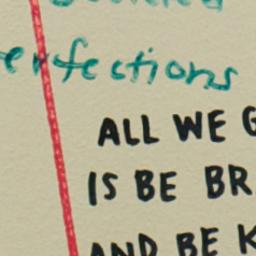 erfections
ALL WE G
IS BE BR
AND BE K